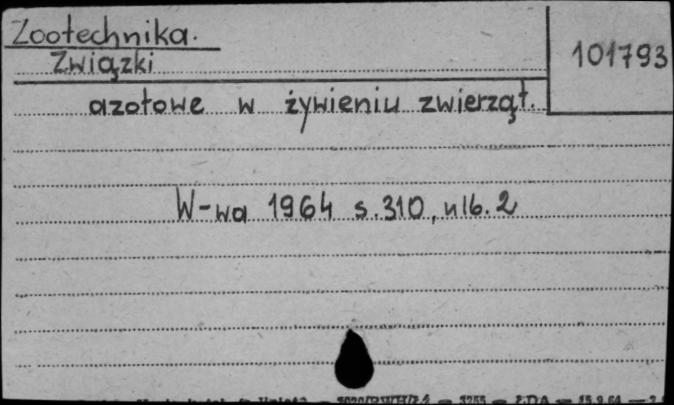 Zootechnika.
Związki
101793
azotowe w żywieniu zwierząt.
W-wa 1964 s.310, nlb. 2